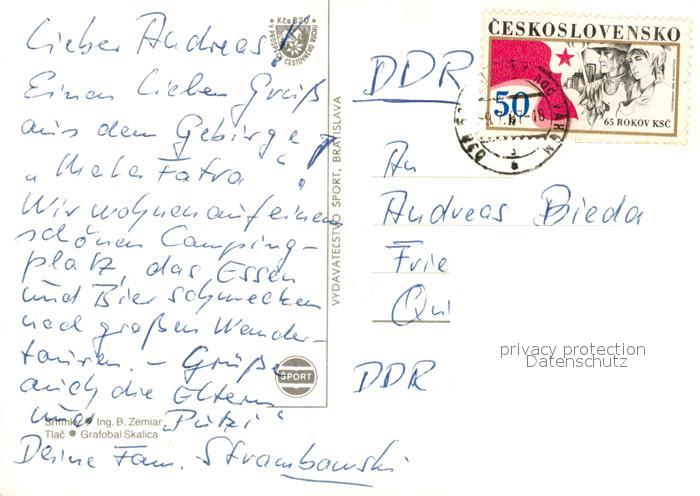 Lieber Andreas!
Einen lieben Gruß
aus dem Gebirge
„Mala Fatra“
Wir wohnen auf einem
schönen Camping-
platz, das Essen
und Bier schmecken
nach großen Wander-
touren. - Grüße
auch die Eltern
und „Putzi“
Deine Fam. Strambowski
Kčs 0,20
VYDAVATEĽSTVO ŠPORT, BRATISLAVA
ŠPORT
Snímky ● Ing. B. Zemiar
Tlač ● Grafobal Skalica
ČESKOSLOVENSKO
50
65 ROKOV KSČ
DDR
An
Andreas Bieda
Frie
DDR
privacy protection
Datenschutz